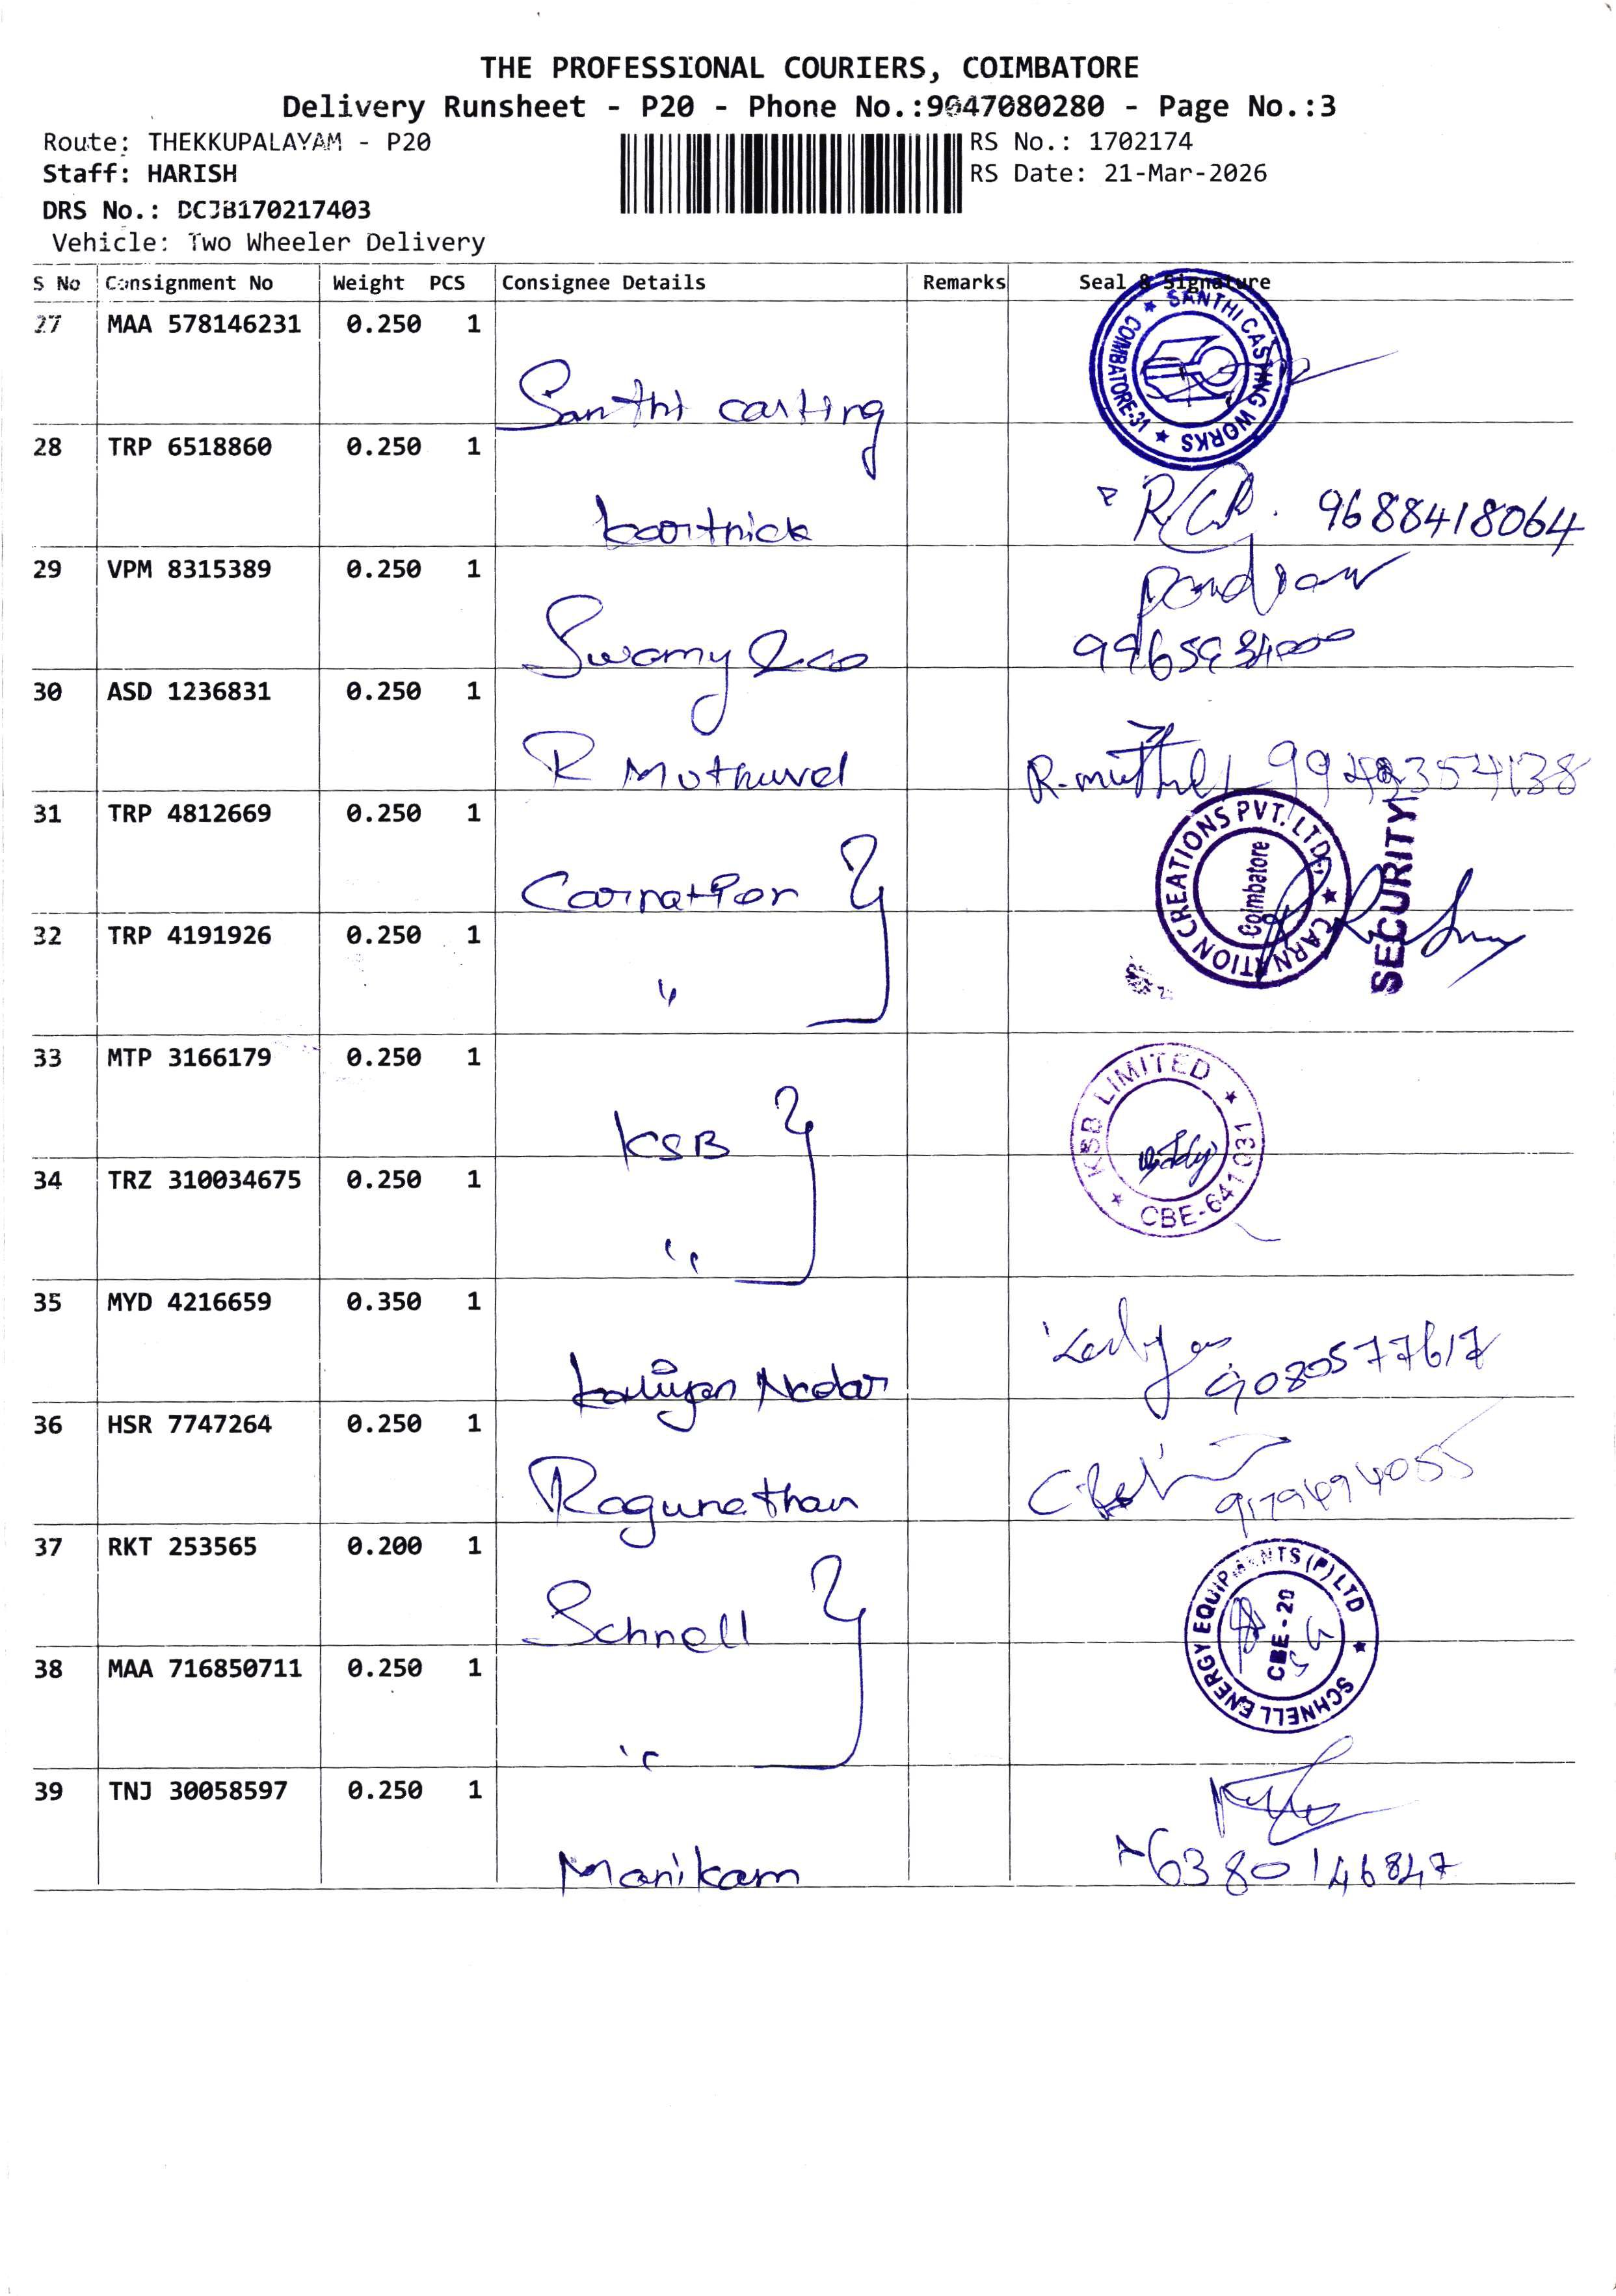 THE PROFESSIONAL COURIERS, COIMBATORE
Delivery Runsheet - P20 - Phone No.:9047080280 - Page No.:3
Route: THEKKUPALAYAM - P20
RS No.: 1702174
Staff: HARISH
RS Date: 21-Mar-2026
DRS No.: DCJB170217403
Vehicle: Two Wheeler Delivery
S No Consignment No Weight PCS Consignee Details Remarks Seal & Signature
27 MAA 578146231 0.250 1
Santhi casting
SANTHI CASTING WORKS ★ COIMBATORE-31 ★
28 TRP 6518860 0.250 1
karthick
9688418064
29 VPM 8315389 0.250 1
Pandian
Swamy & co
30 ASD 1236831 0.250 1
R Muthuvel
R-muthuvel
31 TRP 4812669 0.250 1
Carnation
CARNATION CREATIONS PVT. LTD. ★
Coimbatore
SECURITY
32 TRP 4191926 0.250 1
"
33 MTP 3166179 0.250 1
KSB
★ KSB LIMITED ★ CBE-641 031
34 TRZ 310034675 0.250 1
"
35 MYD 4216659 0.350 1
Nadar
9080577617
36 HSR 7747264 0.250 1
Ragunathan
37 RKT 253565 0.200 1
Schnell
SCHNELL ENERGY EQUIPMENTS (P) LTD ★
CBE - 20
38 MAA 716850711 0.250 1
"
39 TNJ 30058597 0.250 1
Manikam
6380146847